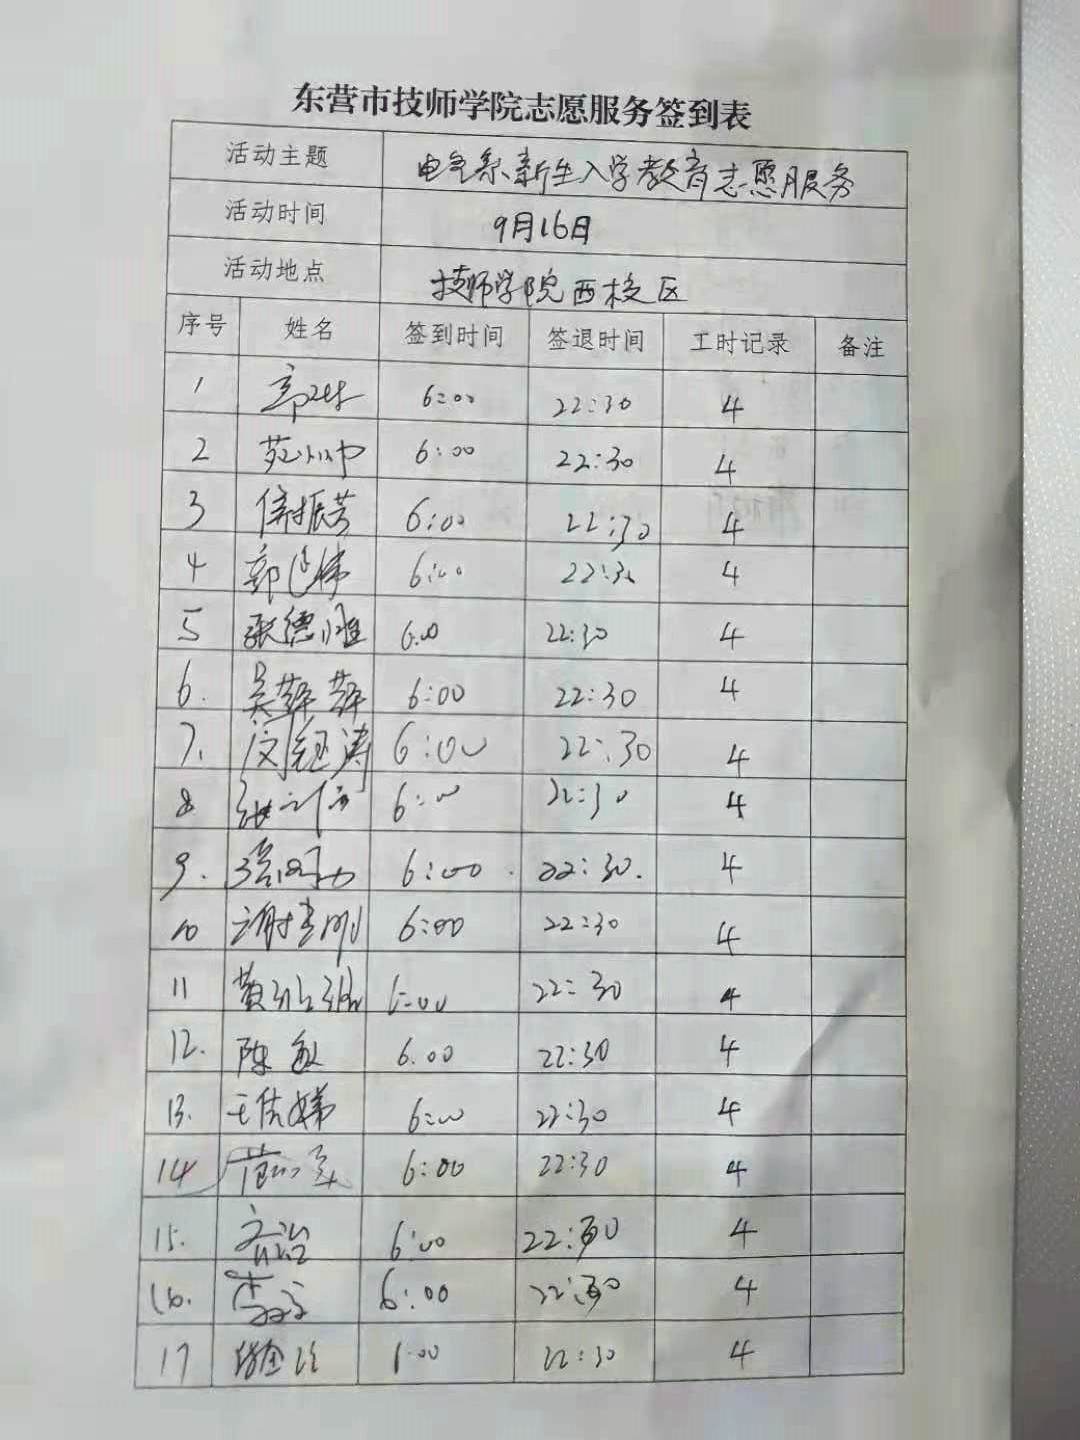 东营市技师学院志愿服务签到表
活动主题 电气系新生入学教育志愿服务
活动时间 9月16日
活动地点 技师学院西校区
序号 姓名 签到时间 签退时间 工时记录 备注
1 6:00 22:30 4
2 6:00 22:30 4
3 振芳 6:00 22:30 4
4 郭 6:00 22:30 4
5 张德 6:00 22:30 4
6. 吴 6:00 22:30 4
7. 闫钰涛 6:00 22:30 4
8 张 6:00 22:30 4
9. 6:00. 22:30. 4
10 谢 刚 6:00 22:30 4
11 黄 6:00 22:30 4
12. 陈敏 6:00 22:30 4
13. 王 娣 6:00 22:30 4
14 6:00 22:30 4
15. 6:00 22:30 4
16. 李 6:00 22:30 4
17 6:00 22:30 4